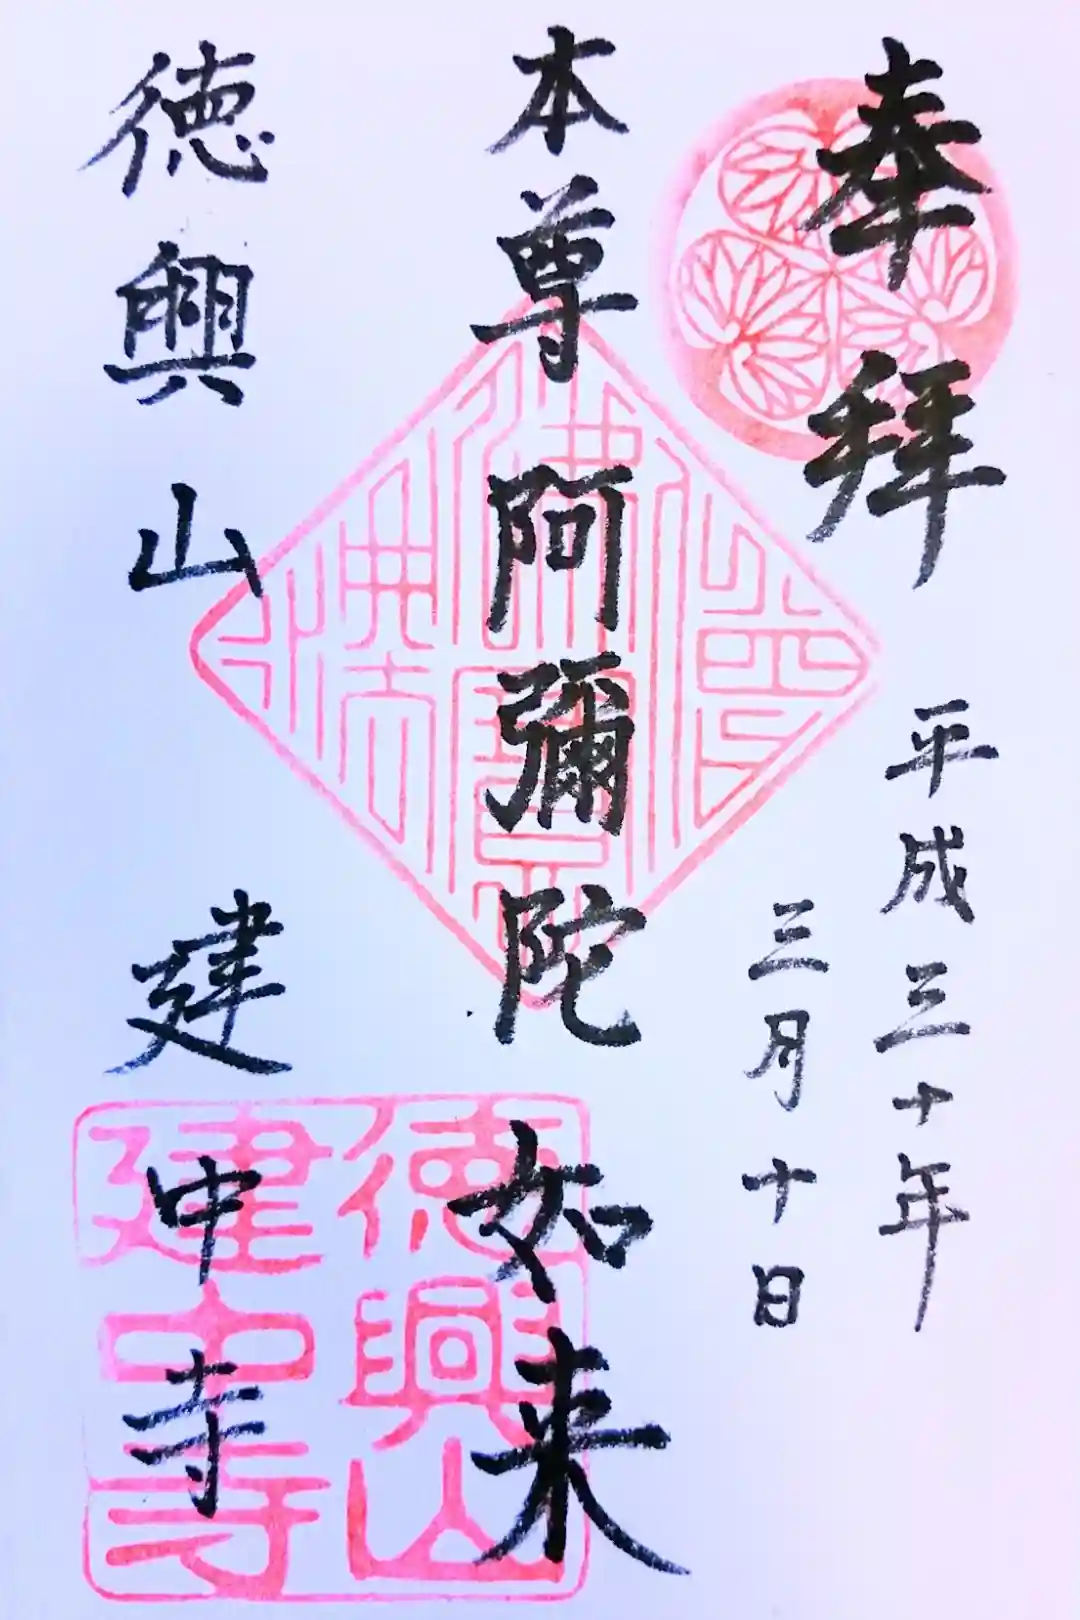 奉拝
平成三十年
三月十日
本尊阿彌陀如来
徳興山 建中寺
佛法僧寶
徳興山
建中寺